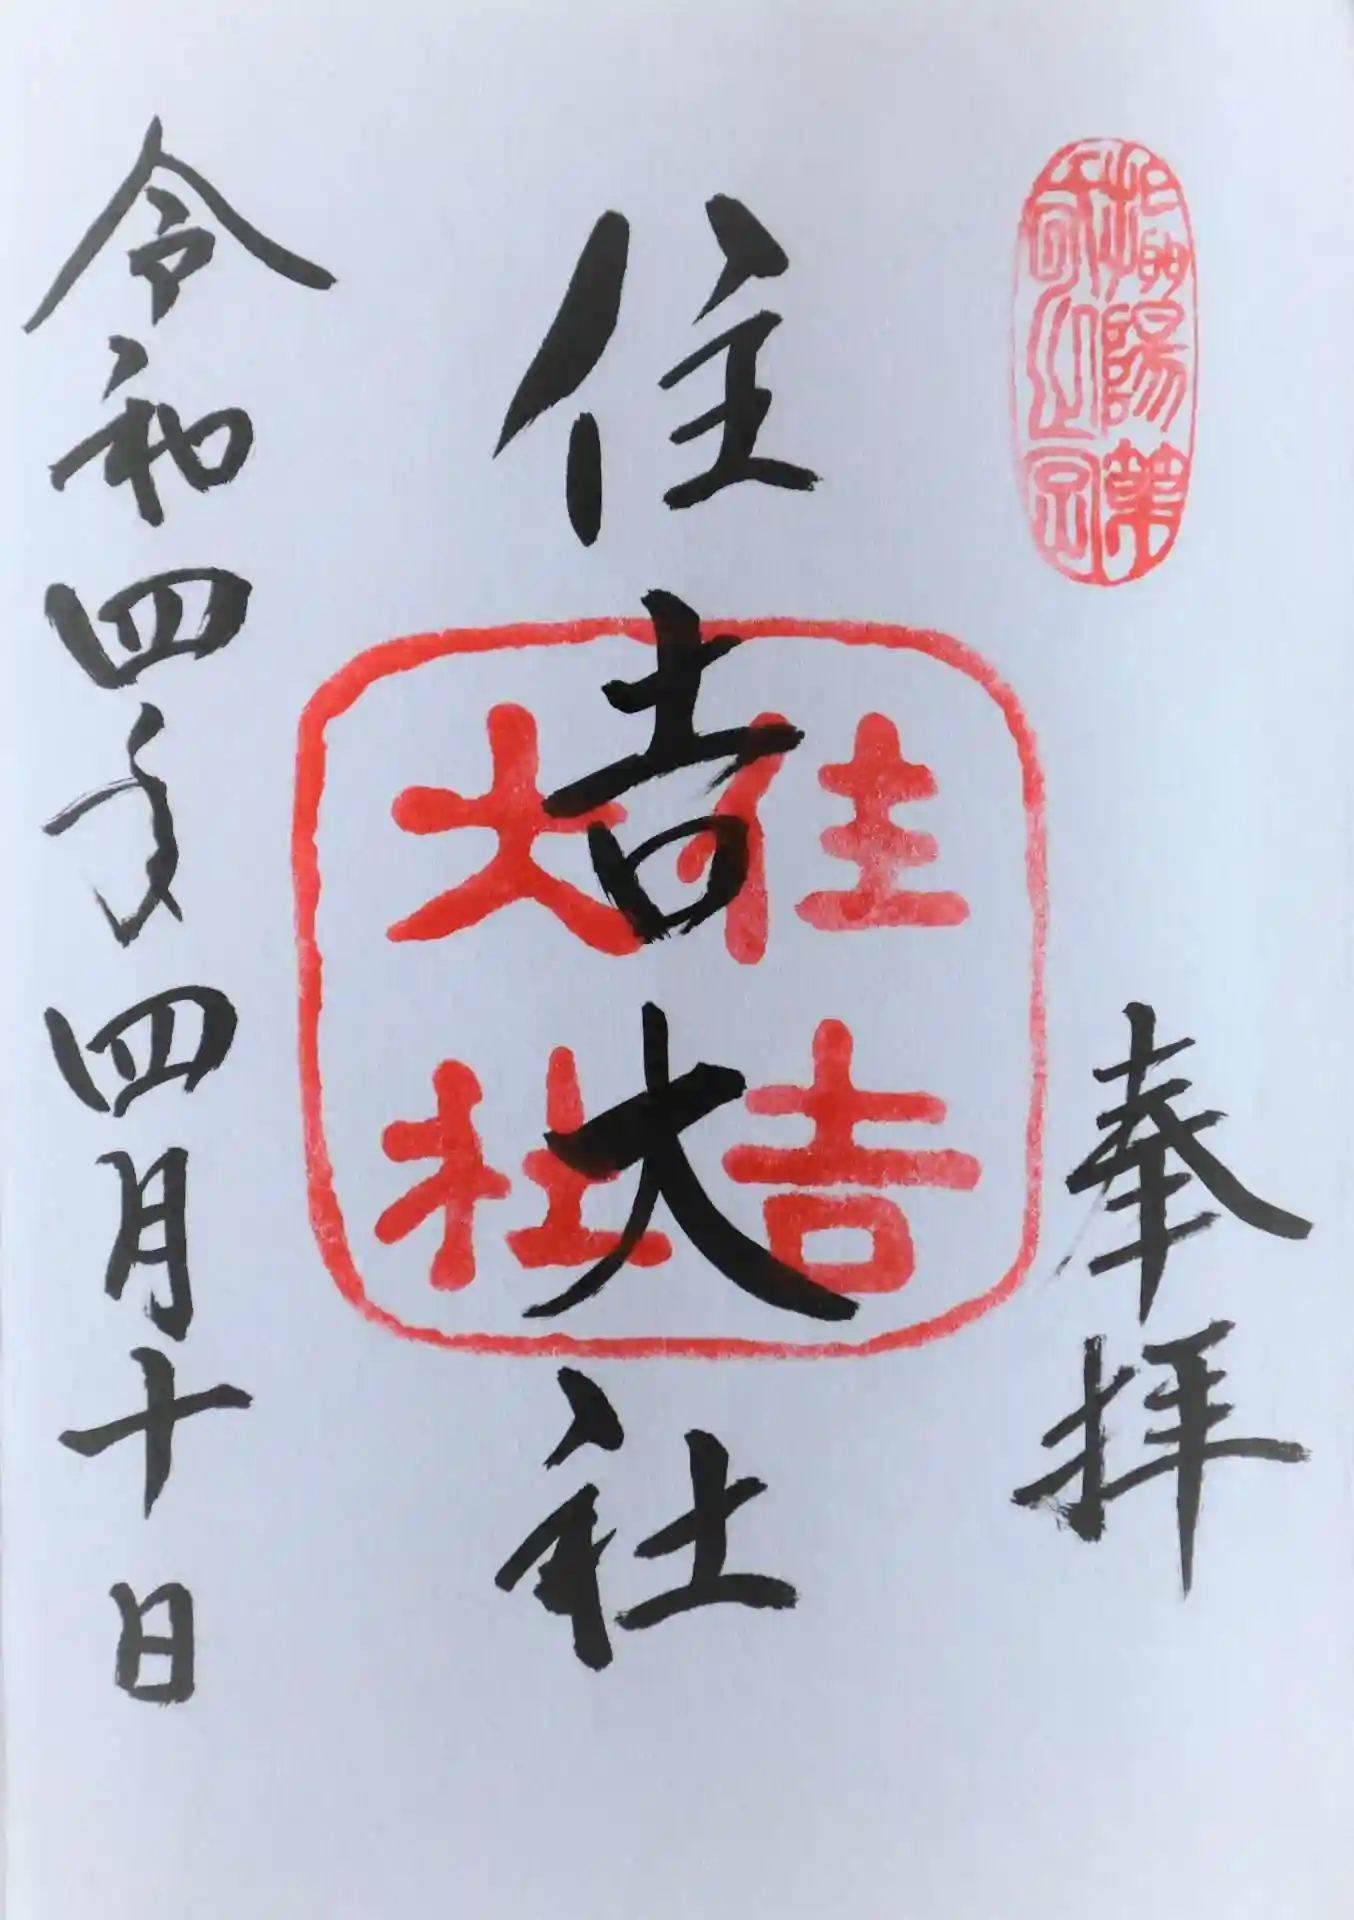 奉拝
住吉大社
住吉
大社
令和四年四月十日